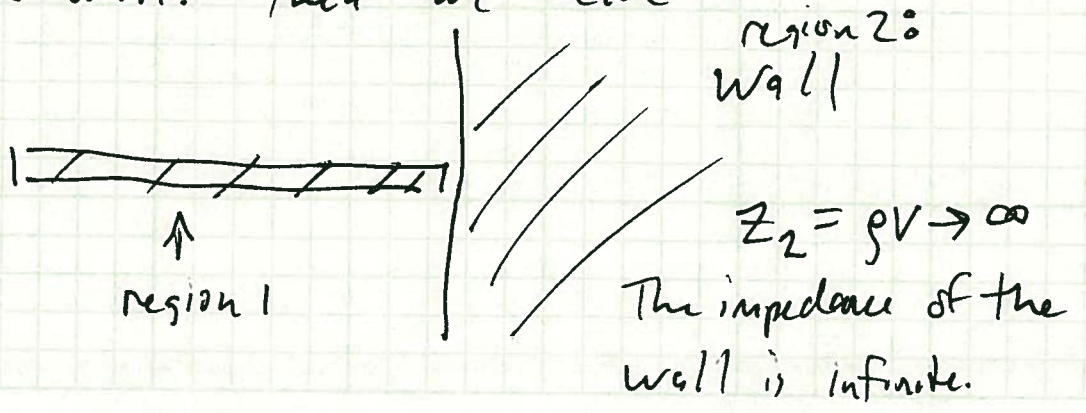 then we
region 2:
Wall
region 1
Z₂ = ρv → ∞
The impedance of the
wall is infinite.